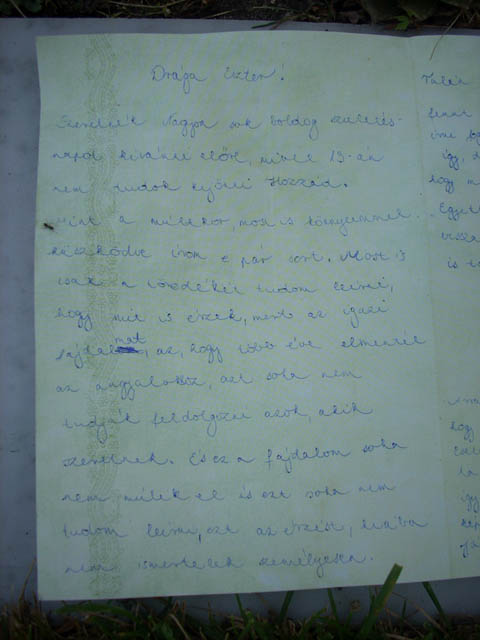 Drága Eszter!
Szeretnék Nagyon sok boldog születés-
napot kívánni előre, mivel 19-én
nem tudok kijönni Hozzád.
Mint a múltkor, most is könnyeimmel
küszködve írom e pár sort. Most is
csak a töredékét tudom leírni,
hogy mit is érzek, mert az igazi
fájdalmat, az, hogy több éve elmentél
az angyalokhoz, azt soha nem
tudják feldolgozni azok, akik
szeretnek. És ez a fájdalom soha
nem múlik el is ezt soha nem
tudom leírni, ezt az érzést, hiába
nem ismertelek személyesen.
Talán
fenn
így,
hogy
vissza
is
hogy
így